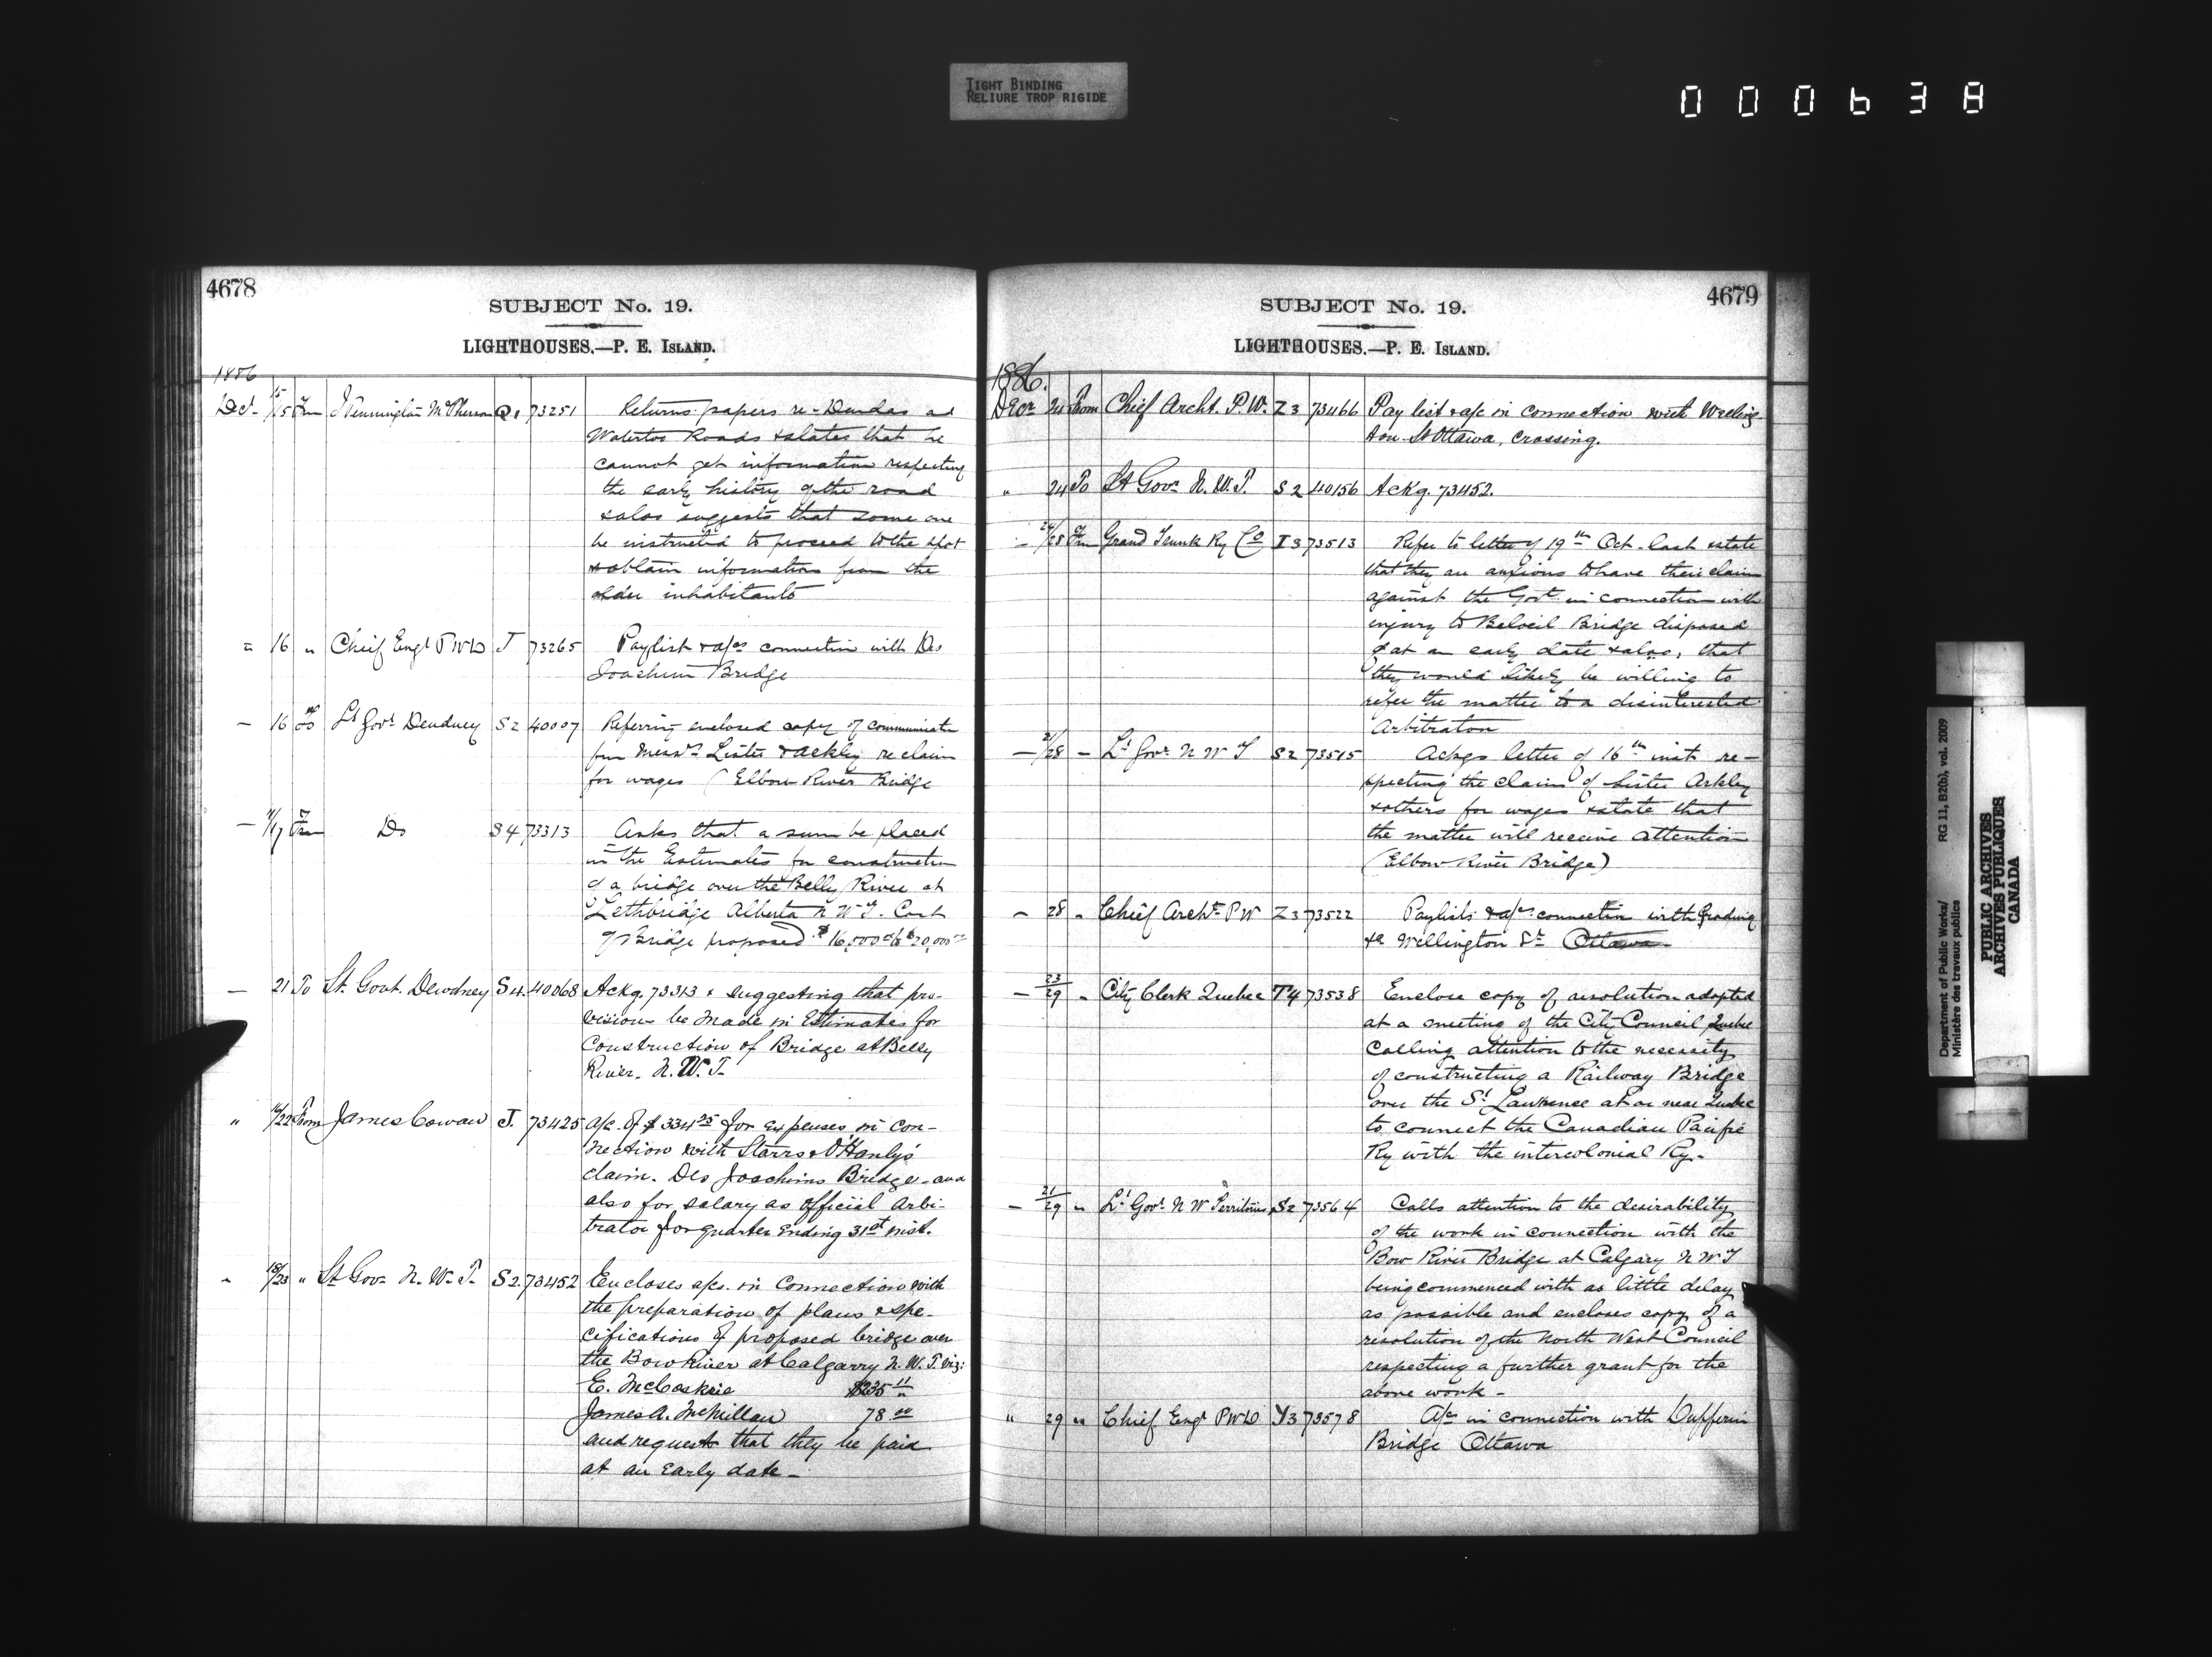 TIGHT BINDING
RELIURE TROP RIGIDE
000638
4678
SUBJECT No. 19.
LIGHTHOUSES.—P. E. ISLAND.
1886
Decr 15/15 From J Pennington McPherson Q1 73251 Returns papers re Dundas and
Waterloo Roads & states that he
cannot get information respecting
the early history of the road
& also suggests that some one
be instructed to proceed to the spot
& obtain information from the
older inhabitants
" 16 " Chief Engr PWD J 73265 Paylist & a/cs connection with Des
Joachim Bridge
— 16 To Lt Govr Dewdney S2 40007 Referring enclosed copy of communicatn
from Messrs Lister & Ackley re claim
for wages (Elbow River Bridge
— /17 From Do S4 73313 Asks that a sum be placed
in the Estimates for construction
of a bridge over the Belly River at
Lethbridge Alberta N W T. Cost
of Bridge proposed $16,000 to $20,000
— 21 To Lt. Govt. Dewdney S4. 40068 Ackg. 73313 & suggesting that pro-
vision be made in Estimates for
Construction of Bridge at Belly
River. N. W. T.
" /22 From James Cowan J. 73425 a/c. of $334 25 for expenses in con-
nection with Starrs & O'Hanly's
claim. Des Joachims Bridge - and
also for salary as official arbi-
trator for quarter ending 31st inst.
" 18/23 " Lt Govr N. W. T. S2. 73452 Encloses a/cs. in connection with
the preparation of plans & spe-
cifications of proposed bridge over
the Bow River at Calgarry N. W. T. viz:
E. McCoskrie $235 11
James A. McMillan 78 00
and request that they be paid
at an early date -
4679
SUBJECT No. 19.
LIGHTHOUSES.—P. E. ISLAND.
1886.
Decr 24 From Chief Archt. P. W. Z3 73466 Pay list & a/c in connection with Welling-
ton St Ottawa, crossing.
" 24 To Lt Govr N. W. T. S2 40156 Ackg. 73452.
— 24/28 From Grand Trunk Ry Co I3 73513 Refer to letter of 19th Oct. last & state
that they are anxious to have their claim
against the Govt in connection with
injury to Beloeil Bridge disposed
of at an early date & also, that
they would likely be willing to
refer the matter to a disinterested
Arbitrator
— 21/28 — Lt Govr N W T S2 73515 Ackgs letter of 16th inst re-
specting the claim of Lister Arkley
& others for wages & state that
the matter will receive attention
(Elbow River Bridge)
— 28 " Chief Archt P W Z3 73522 Paylists & a/cs connection with Grading
&c Wellington St Ottawa
— 23/29 " City Clerk Quebec T4 73538 Enclose copy of resolution adopted
at a meeting of the City Council Quebec
Calling attention to the necessity
of constructing a Railway Bridge
over the St Lawrence at or near Quebec
to connect the Canadian Pacific
Ry with the intercolonial Ry-
— 21/29 " Lt Govr N W Territories S2 73564 Calls attention to the desirability
of the work in connection with the
Bow River Bridge at Calgary N W T
being commenced with as little delay
as possible and encloses copy of a
resolution of the North West Council
respecting a further grant for the
above work -
" 29 " Chief Engr PWD Y3 73578 A/c in connection with Dufferin
Bridge Ottawa
Department of Public Works/ RG 11, B2(b), vol. 2009
Ministère des travaux publics
PUBLIC ARCHIVES
ARCHIVES PUBLIQUES
CANADA